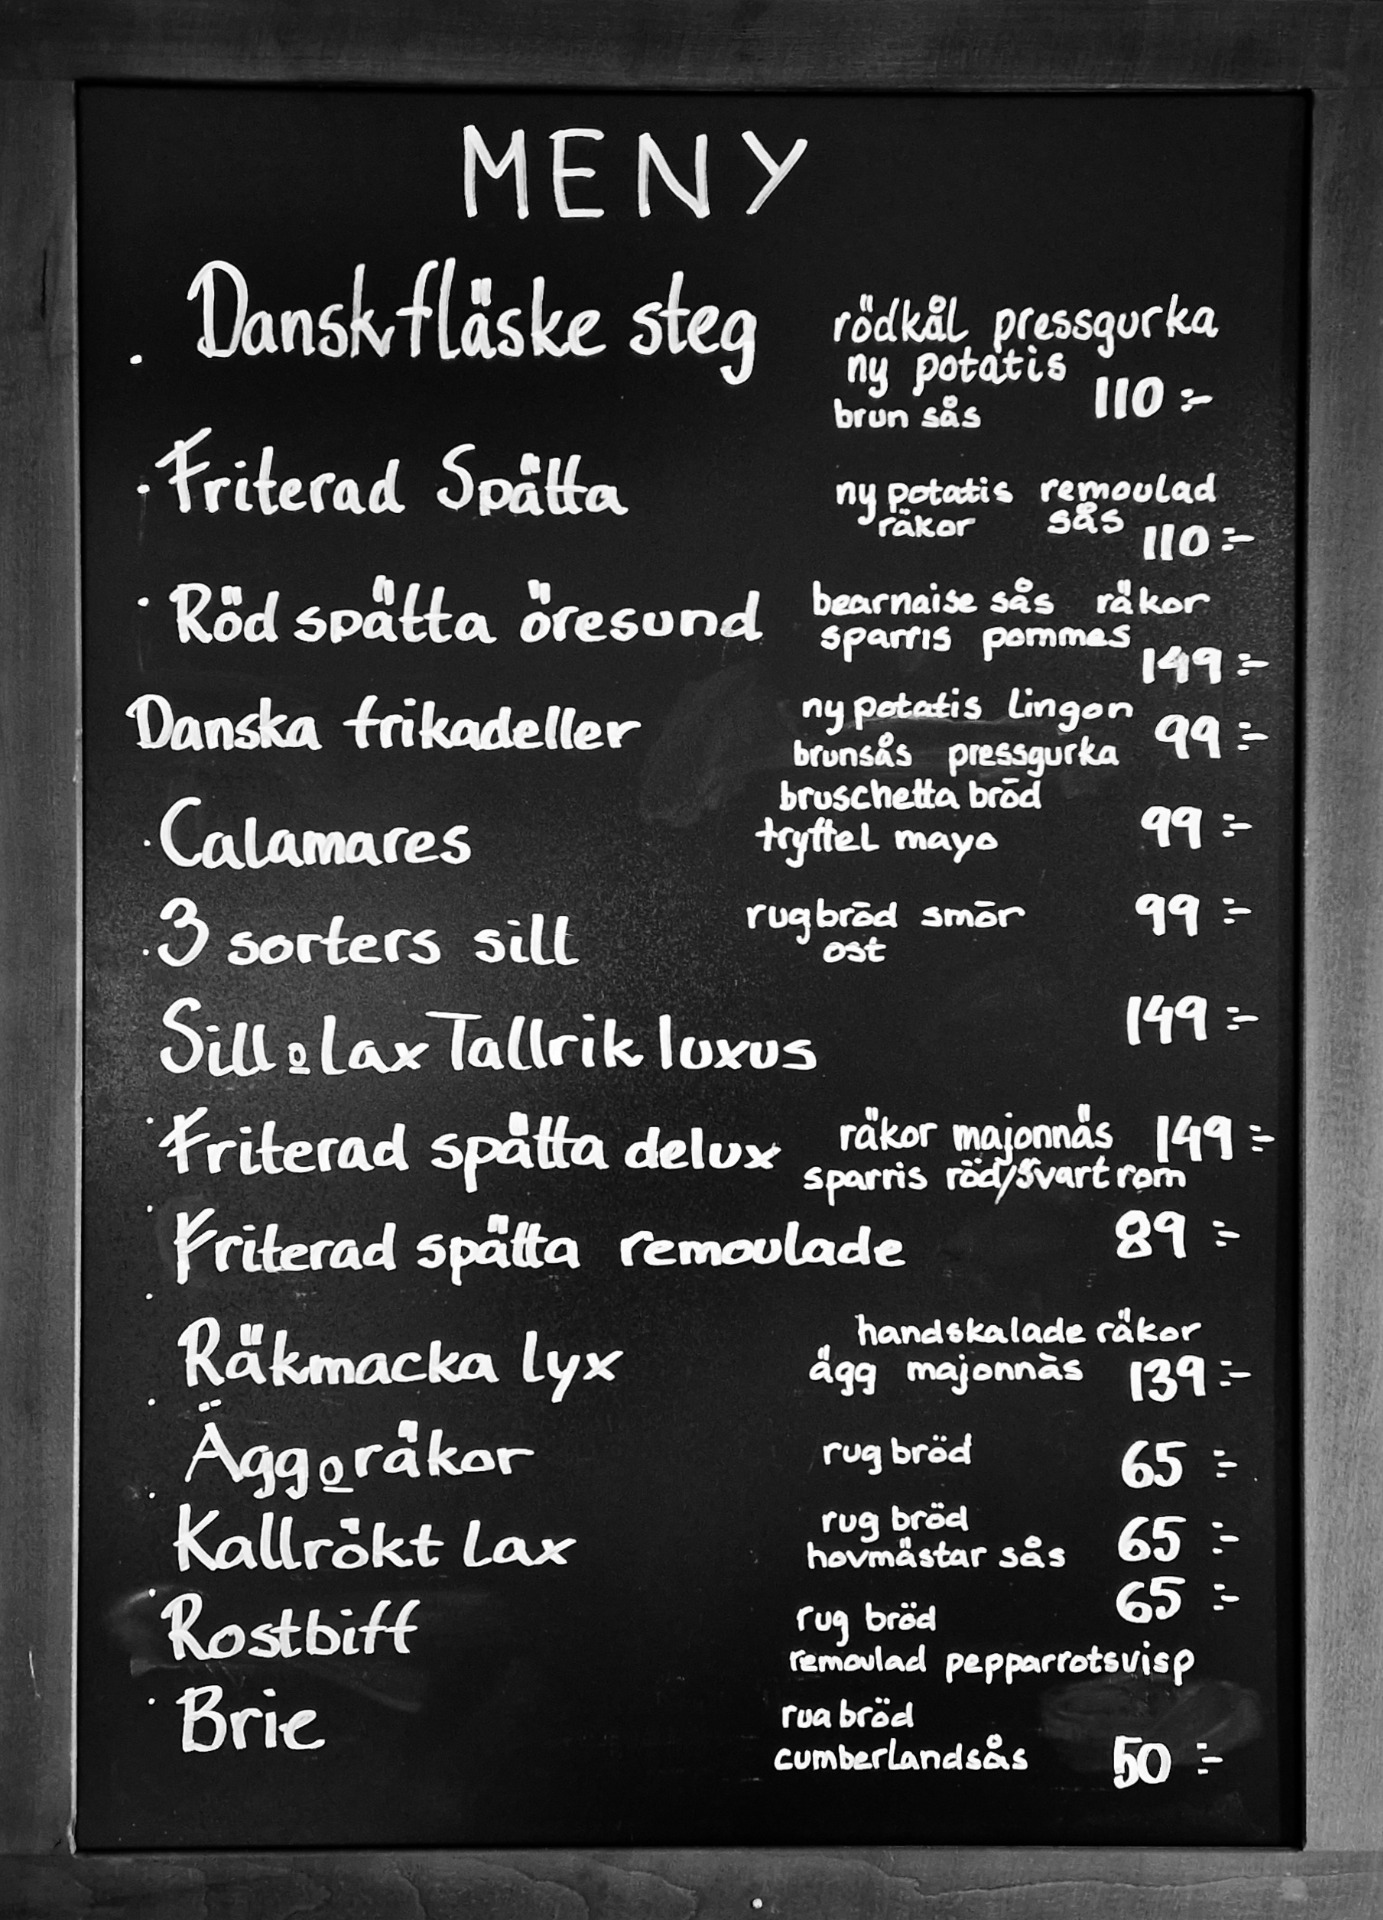 MENY
Danskfläske steg
rödkål pressgurka
ny potatis
brun sås 110:-
Friterad Spätta
ny potatis remoulad
räkor sås
110:-
Röd spätta öresund
bearnaise sås räkor
sparris pommes
149:-
Danska frikadeller
ny potatis lingon
brunsås pressgurka
99:-
Calamares
bruschetta bröd
tryffel mayo
99:-
3 sorters sill
rugbröd smör
ost
99:-
Sill o lax Tallrik luxus
149:-
Friterad spätta delux
räkor majonnäs 149:-
sparris röd/svart rom
Friterad spätta remoulade
89:-
Räkmacka lyx
handskalade räkor
ägg majonnäs 139:-
Ägg o räkor
rug bröd
65:-
Kallrökt Lax
rug bröd
hovmästar sås
65:-
Rostbiff
65:-
rug bröd
remoulad pepparrotsvisp
Brie
rua bröd
cumberlandsås
50:-